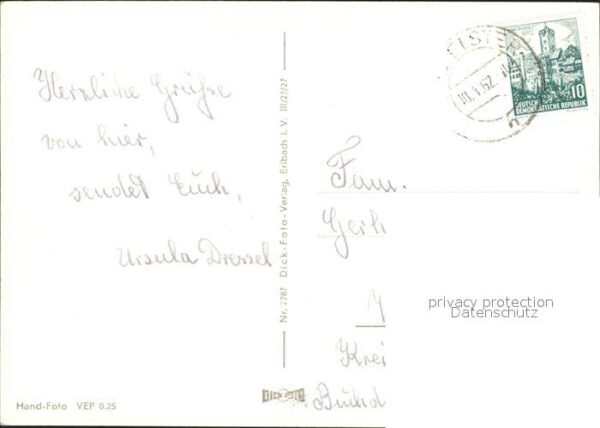 Herzliche Grüße
von hier,
sendet Euch,
Ursula Dressel
Hand-Foto VEP 0.25
Nr. 2787 Dick-Foto-Verlag, Erlbach i. V. III/23/27
DICK FOTO
10
DEUTSCHE
DEMOKRATISCHE REPUBLIK
Fam.
Gerh
Krei
privacy protection
Datenschutz